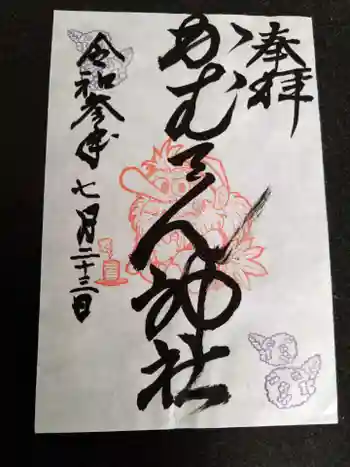 奉拝
がむてん神社
令和参年七月二十三日